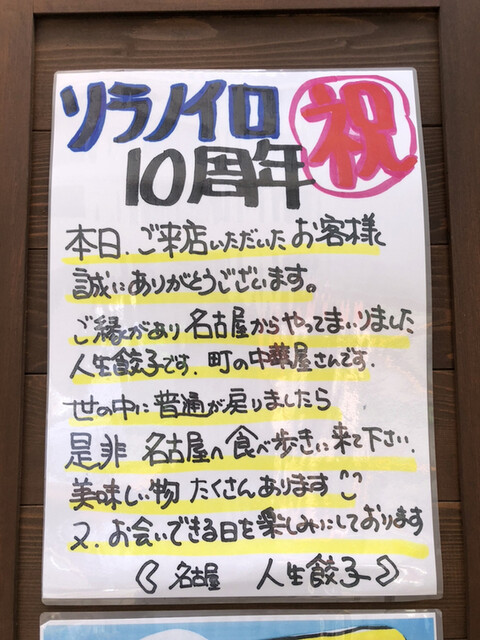 ソラノイロ
祝
10周年
本日、ご来店いただいたお客様
誠にありがとうございます。
ご縁があり名古屋からやってまいりました
人生餃子です。町の中華屋さんです。
世の中に普通が戻りましたら
是非 名古屋へ食べ歩きに来て下さい。
美味しい物 たくさんあります
又、お会いできる日を楽しみにしております
《 名古屋 人生餃子 》